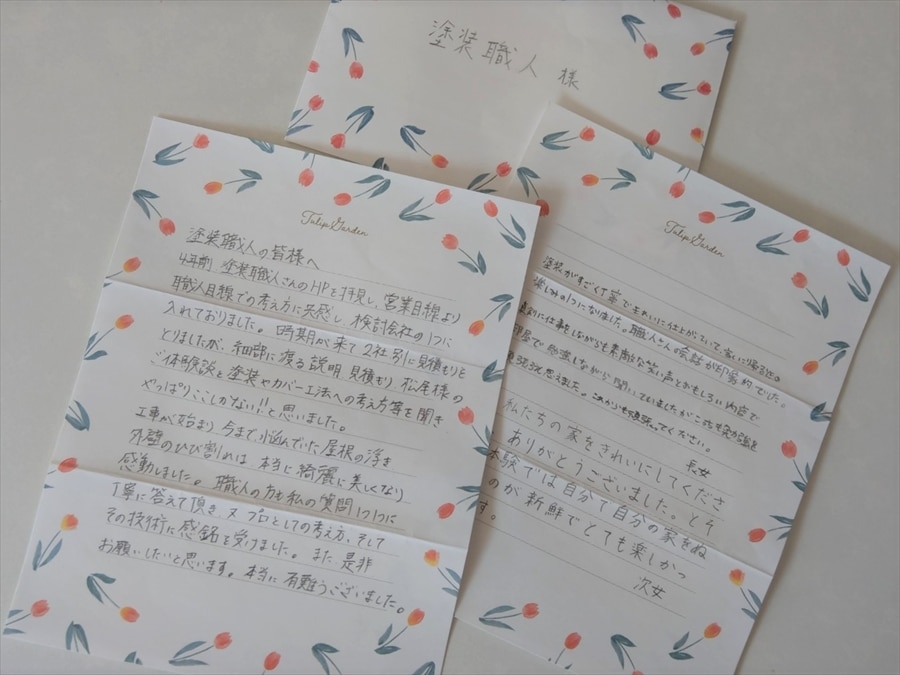 塗装職人 様
Tulip Garden
塗装職人の皆様へ
4年前 塗装職人さんのHPを拝見し、営業目線より
職人目線での考え方に共感し、検討会社の1つに
入れておりました。時期が来て2社別に見積もりを
とりましたが、細部に渡る説明、見積もり、松尾様の
ご体験談と塗装やカバー工法への考え方等を聞き
やっぱりここしかない!!と思いました。
工事が始まり 今まで悩んでいた屋根の浮き
外壁のひび割れは 本当に綺麗に美しくなり
感動しました。職人の方も私の質問1つ1つに
丁寧に答えて頂き 又 プロとしての考え方、そして
その技術に感銘を受けました。また 是非
お願いしたいと思います。本当に 有難うございました。
Tulip Garden
塗装がすごく丁寧できれいに仕上がっていて、家に帰るのが
楽しみの1つになりました。職人さんの会話が印象的でした。
真剣に仕事をしながらも素敵な笑い声とおもしろい内容で
部屋で勉強しながら聞いていましたが
思えました。これからも頑張ってください。
長女
私たちの家をきれいにしてくださ
ありがとうございました。とそ
体験では自分で自分の家をぬ
のが新鮮でとても楽しかっ
す。
次女